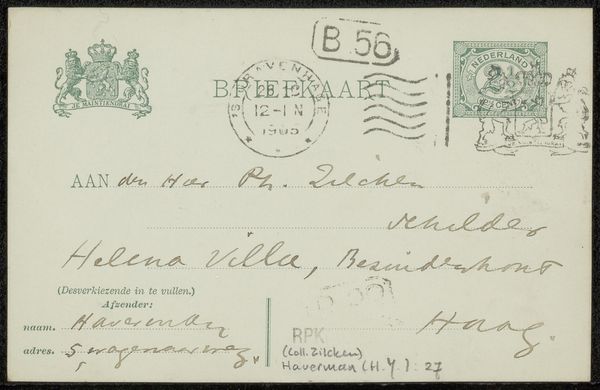 B 56
'S GRAVENHAGE
12-1 N
1905
NEDERLAND
2½
CENT
JE MAINTIENDRAI
BRIEFKAART
AAN den Heer Ph. Zilcken
schilder
Helena Villa, Bezuidenhout
(Desverkiezende in te vullen.)
Afzender:
Haag.
naam. Haverman
adres. 5, wagenaarweg.
RPK
(Coll. Zilcken)
Haverman (H.Y.): 27